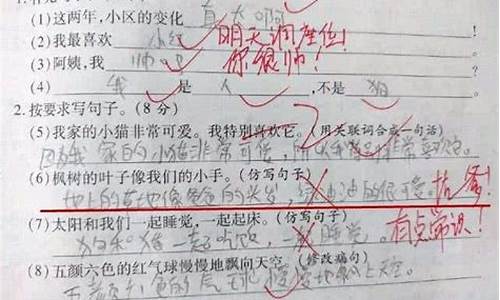 (1)这两年,小区的变化 真大啊
(2)我最喜欢 小红 明天调座位!
(3)阿姨,我 帅吗 你很帅!
(4) 我 是 人 ,不是 狗
2.按要求写句子。(8 分)
(5)我家的小猫非常可爱。我特别喜欢它。(用关联词合成一句话)
因为我家的小猫非常可爱,所以我特别非常喜欢它。
(6)枫树的叶子像我们的小手。(仿写句子)
地上的草地像爸爸的头发,绿油油的很可爱。
(7)太阳和我们一起睡觉,一起起床。(仿写句子) 有点常识!
狗和猪一起吃饭,一起睡觉。
(8)五颜六色的红气球慢慢地飘向天空。(修改病句)
五颜六色的气球慢慢地飘上天空。